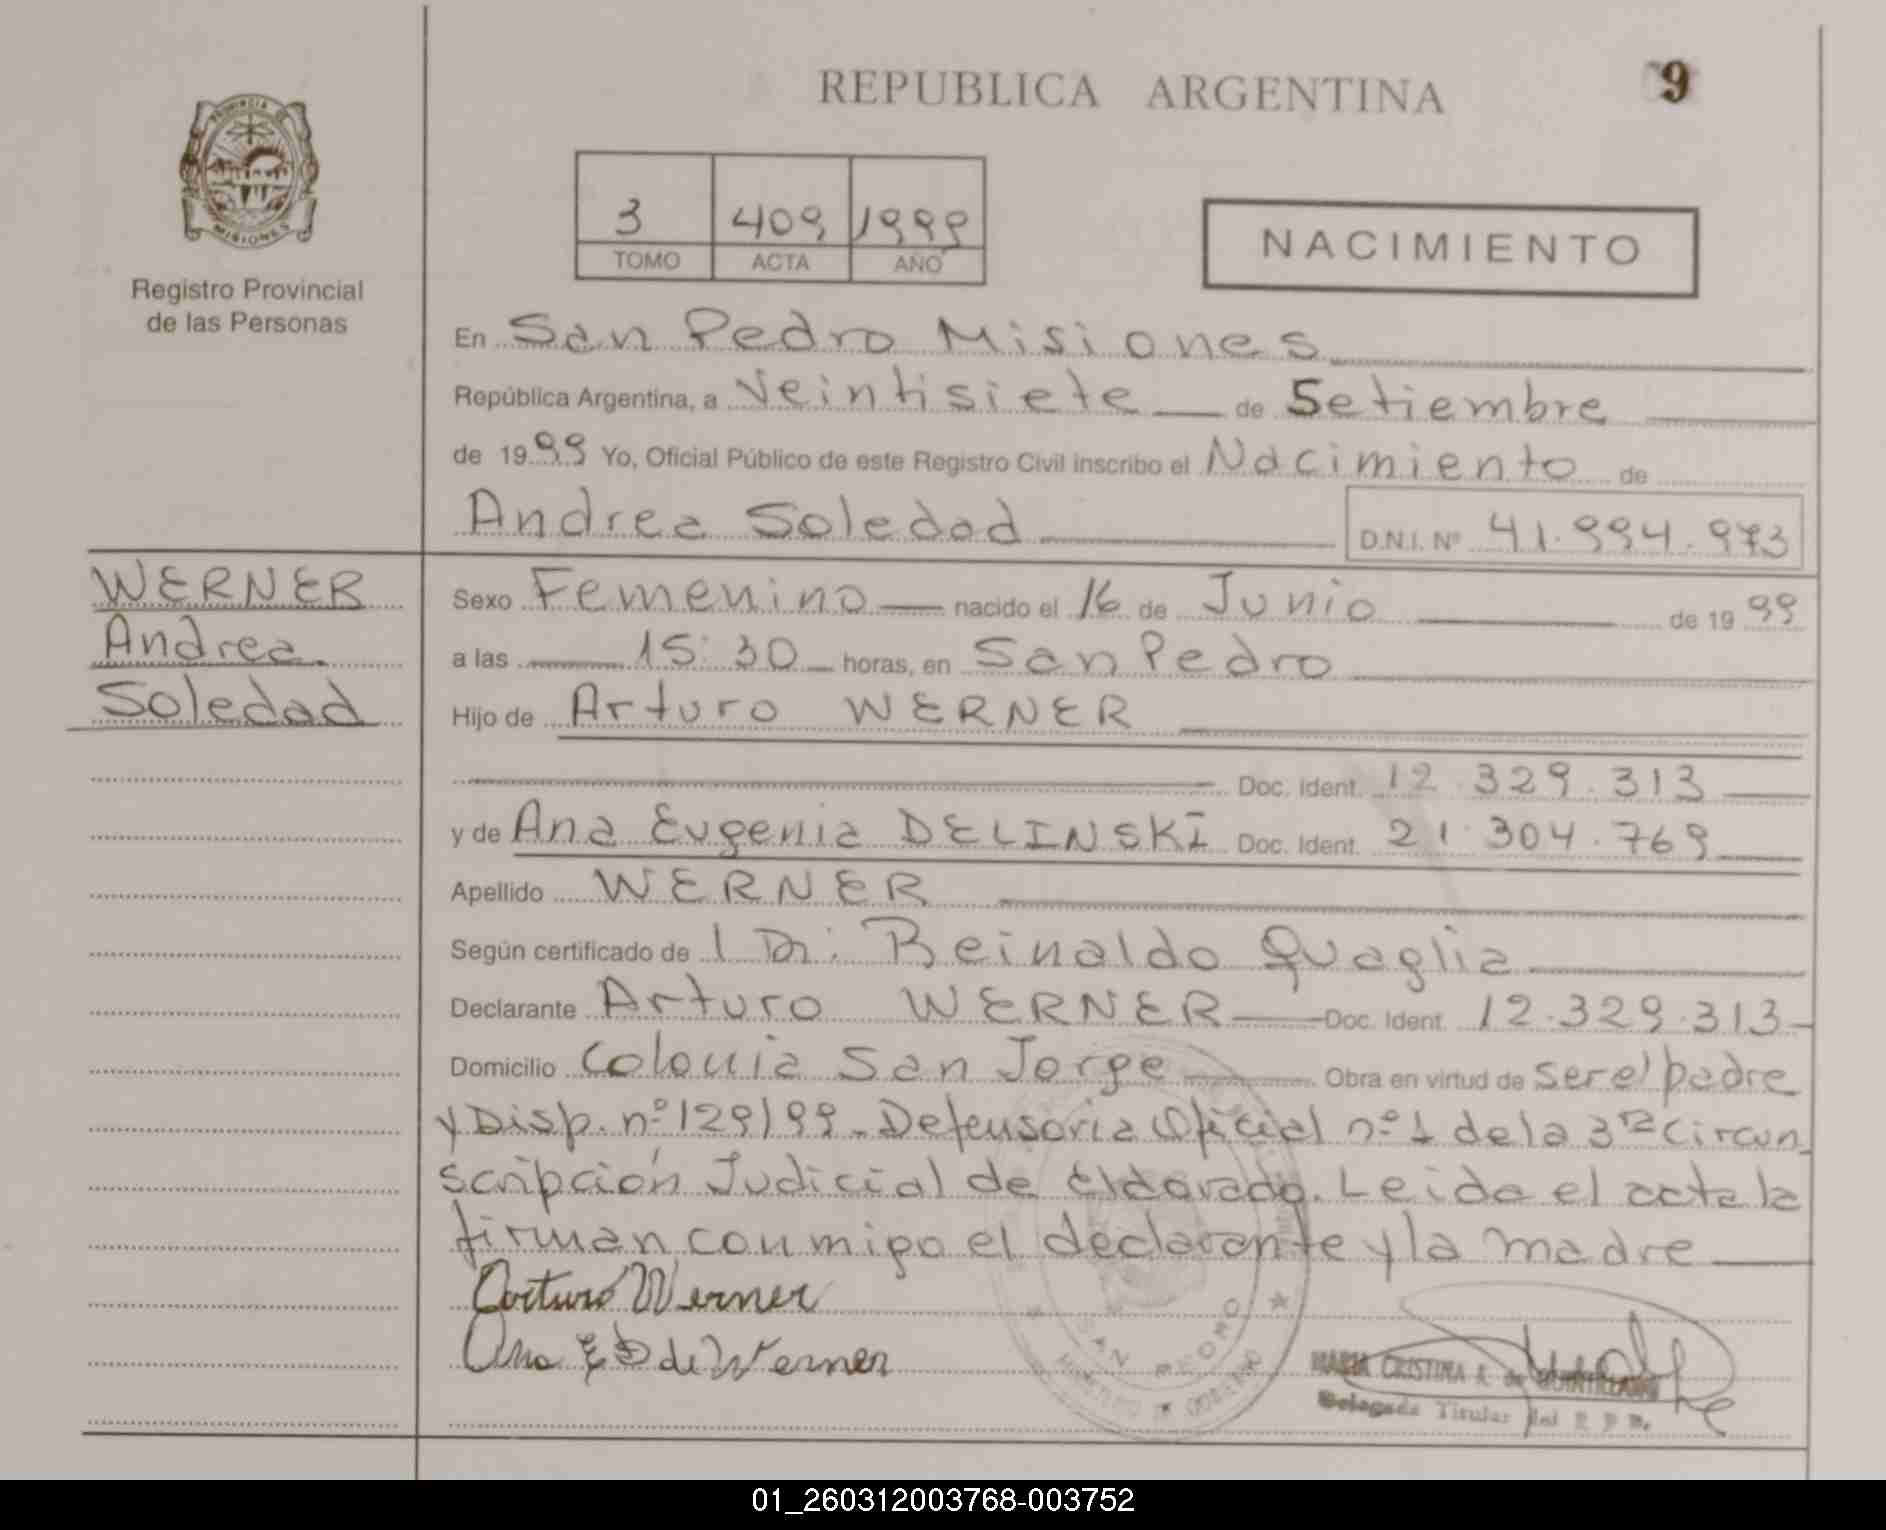 REPUBLICA ARGENTINA
9
PROVINCIA DE
MISIONES
Registro Provincial
de las Personas
3 409 1999
TOMO ACTA AÑO
NACIMIENTO
En San Pedro Misiones
República Argentina, a Veintisiete de Setiembre
de 1999 Yo, Oficial Público de este Registro Civil inscribo el Nacimiento de
Andrea Soledad
D.N.I. Nº 41.994.973
WERNER
Andrea
Soledad
Sexo Femenino nacido el 16 de Junio de 1999
a las 15:30 horas, en San Pedro
Hijo de Arturo WERNER
Doc. Ident. 12.329.313
y de Ana Eugenia DELINSKI Doc. Ident. 21.304.769
Apellido WERNER
Según certificado de 1 Dr: Reinaldo Quaglia
Declarante Arturo WERNER Doc. Ident. 12.329.313
Domicilio Colonia San Jorge Obra en virtud de ser el padre
y Disp. nº 129/99 - Defensoria Oficial nº 1 de la 3ra Circun
scripción Judicial de Eldorado. Leida el acta la
firman conmigo el declarante y la madre
Arturo Werner
Ana E D de Werner
SAN PEDRO
MARIA CRISTINA R. de QUINTILLAN
Delegada Titular del R P P.
01_260312003768-003752